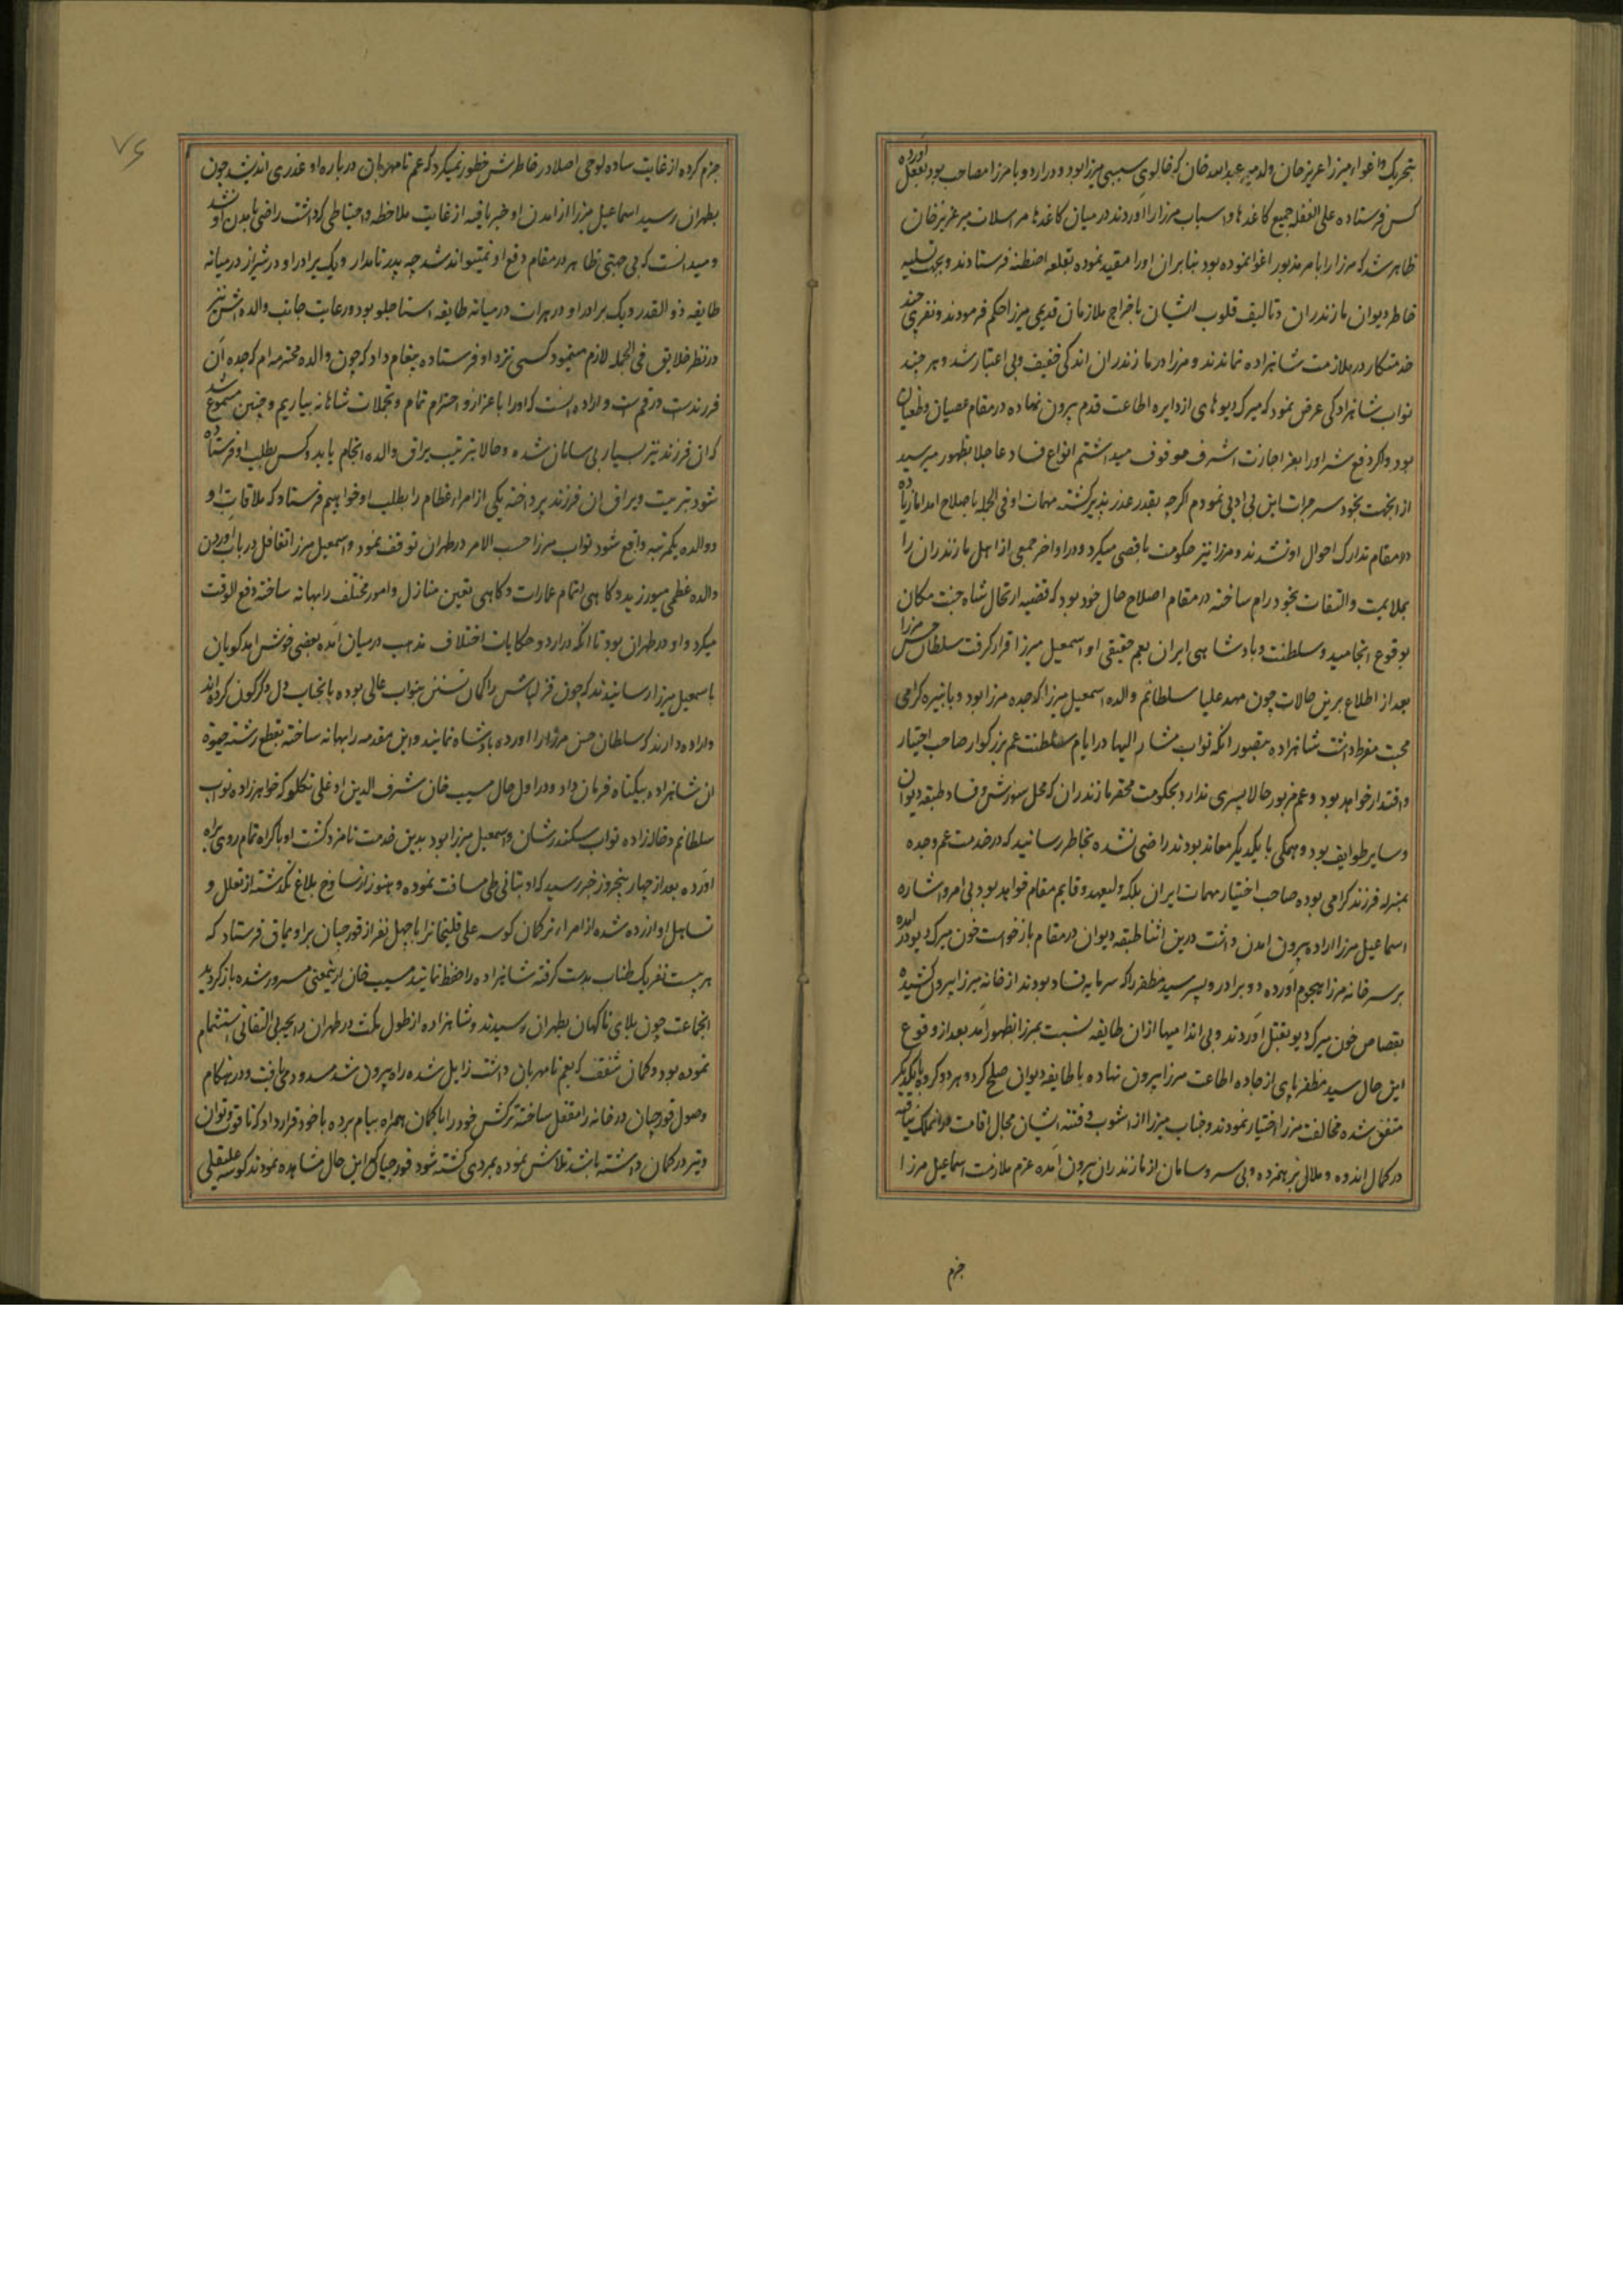 بتحریک و اغواء میرزا عزیز خان ولد میر عبدالله خان که خالوی سببی میرزا بود و در اردو با مرزا مصاحب بود بفعل آورده
کس فرستاده علی الغفله جمیع کاغذها و اسباب مرزا را آوردند در میان کاغذها مراسلات میر عزیز خان
ظاهر شد که مرزا را بامر مزبور اغوا نموده بود بنابران او را مقید نموده بقلعه اصطخر فرستادند و بجهت تسلیه
خاطر دیوان مازندران و تالیف قلوب ایشان باخراج ملازمان قدیمی میرزا حکم فرمودند و نفری چند
خدمتکار در ملازمت شاهزاده نماندند و مرزا در مازندران اندکی خفیف و بی اعتبار شد و هر چند
نواب شاهزادکی عرض نمود که میرک دیو پای از دایره اطاعت قدم بیرون نهاده در مقام عصیان و طغیان
بود و اکر دفع شر او را بعز اجازت اشرف موقوف میداشتم انواع فساد عاجلا بظهور میرسید
از انجهت بخود سر جرات این بی ادبی نمودم اکرچه بقدر عذر پذیر کشته مهمات او فی الجمله باصلاح امد اما زیاده
در مقام تدارک احوال او نشدند و مرزا نیز حکومت ناقصی میکرد و در اواخر جمعی از اهل مازندران را
بملایمت و التفات بخود رام ساخته در مقام اصلاح حال خود بود که قضیه ارتحال شاه جنت مکان
بوقوع انجامید و سلطنت و پادشاهی ایران بعم حقیقی او اسمعیل میرزا قرار کرفت سلطان حسن مرزا
بعد از اطلاع برین حالات چون مهد علیا سلطانم والده اسمعیل میرزا که جده مرزا بود و با نبیره کرامی
محبت مفرط داشت شاهزاده بتصور انکه نواب مشار الیها در ایام سلطنت عم بزرکوار صاحب اختیار
و اقتدار خواهد بود و عم مزبور حالا پسری ندارد بحکومت محقر مازندران که محل شورش و فساد طبقه دیوان
و سایر طوایف بود و همکی با یکدیکر معاند بودند راضی نشده بخاطر رسانید که در خدمت عم و جده
بمنزله فرزند کرامی بوده صاحب اختیار مهمات ایران بلکه ولیعهد و قایم مقام خواهد بود بی امر و اشاره
اسماعیل مرزا اراده بیرون امدن داشت درین اثنا طبقه دیوان در مقام بازخواست خون میرک دیو در آمده
بر سر خانه مرزا هجوم آورده دو برادر و پسر سید مظفر را که سرمایه فساد بودند از خانه میرزا بیرون کشیده
بقصاص خون میرک دیو بقتل آوردند و بی اندامیها ازان طایفه نسبت بمرزا بظهور آمد بعد از وقوع
این حال سید مظفر پای از جاده اطاعت مرزا بیرون نهاده با طایفه دیوان صلح کرد و هر دو کروه با یکدیکر
متفق شده مخالفت مرزا اختیار نمودند و جناب میرزا از آشوب و فتنه ایشان مجال اقامت در انملک نیافته
در کمال اندوه و ملال بر همزده و بی سر و سامان از مازندران بیرون آمده عزم ملازمت اسماعیل مرزا
جزم
۷۶
جزم کرده از غایت ساده لوحی اصلا در خاطرش خطور نمیکرد که عم نامهربان درباره او غدری اندیشد چون
بطهران رسید اسماعیل مرزا از امدن او خبر یافته از غایت ملاحظه و احتیاطی که داشت راضی بامدن او نشد
و میدانست که بی جهتی ظاهر در مقام دفع او نمیتواند شد چه پدر نامدار و یک برادر او در شیراز در میانه
طایفه ذوالقدر و یک برادر او در هرات در میانه طایفه استاجلو بود و رعایت جانب والده اش نیز
در نظر خلایق فی الجمله لازم مینمود کسی نزد او فرستاده پیغام داد که چون والده محترمه ام که جده آن
فرزندست در قم است و اراده آنست که او را باعزاز و احترام تمام و تجملات شاهانه بیاریم و چنین مسموع شد
که آن فرزند نیز بسیار بی سامان شده و حالا بترتیب یراق والده انجام یابد و کس بطلب او فرستاده
شود بتربیت و یراق ان فرزند پرداخته یکی از امراء عظام را بطلب او خواهیم فرستاد که ملاقات او
و والده یکمرتبه واقع شود نواب مرزا حسب الامر در طهران توقف نمود و اسمعیل مرزا تغافل در باب آوردن
والده عظمی میورزید و کاهی اتمام عمارات و کاهی تعین منازل و امور مختلف را بهانه ساخته دفع الوقت
میکرد و او در طهران بود تا انکه در اردو حکایات اختلاف مذهب در میان آمده بعضی خوش امدکویان
باسمعیل میرزا رسانیدند که چون قزلباش را کمان تسنن بنواب عالی بوده بانجناب دل دکرکون کرده اند
و اراده دارند که سلطان حسن مرزا را آورده پادشاه نمایند و این مقدمه را بهانه ساخته بقطع رشته حیوة
ان شاهزاده بیکناه فرمان داد و در اول حال مسیب خان شرف الدین اوغلی تکلو که خواهرزاده نواب
سلطانم و خاله زاده نواب سکندرشان و اسمعیل میرزا بود بدین خدمت نامزد کشت او باکراه تمام روی براه
آورده بعد از چهار پنجروز خبر رسید که او بتانی طی مسافت نموده و هنوز از ساوخ بلاغ نکذشته از تعلل و
تساهل او ازرده شده از امراء ترکمان کوسه علی قلیخانرا با چهل نفر از قورچیان براویماق فرستاد که
هر بیست نفر یک طناب بدست کرفته شاهزاده را ضبط نمایند مسیب خان ازینمعنی مسرور شده باز کردید
انجماعت چون بلای ناکهان بطهران رسیدند و شاهزاده از طول مکث در طهران رایحه بی التفاتی استشمام
نموده بود و کمان شفقت که بعم نامهربان داشت زایل شده راه بیرون شد مسدود می یافت و در هنکام
وصول قورچیان در خانه را مقفل ساخته ترکش خود را با کمان همراه ببام برده با خود قرار داد که تا قوت و توان
و تیر در کمان داشته باشد تلاش نموده بمردی کشته شود قورچیان که این حال مشاهده نمودند کوسه علیقلی